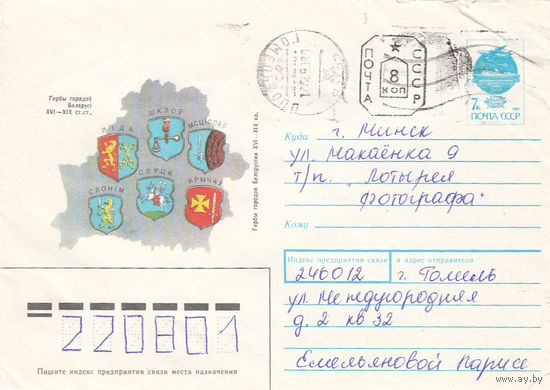 Гербы гарадоў
Беларусі
XVI—XIX ст.ст.
Гербы городов Белоруссии XVI—XIX вв.
ЛІДА
ШКЛОЎ
МСЦІСЛАЎ
СЛОНІМ
СЛУЦК
КРЫЧАЎ
ПОЧТА
8
КОП
СССР
7к
ПОЧТА СССР
Куда г. Минск
ул. Макаёнка 9
т/п. "Лотырея
фотографа"
Кому
Индекс предприятия связи и адрес отправителя
246012 г. Гомель
ул. Междугородняя
д. 2 кв 32
Емельяновой Ларисе
220801
Пишите индекс предприятия связи места назначения
www.ay.by